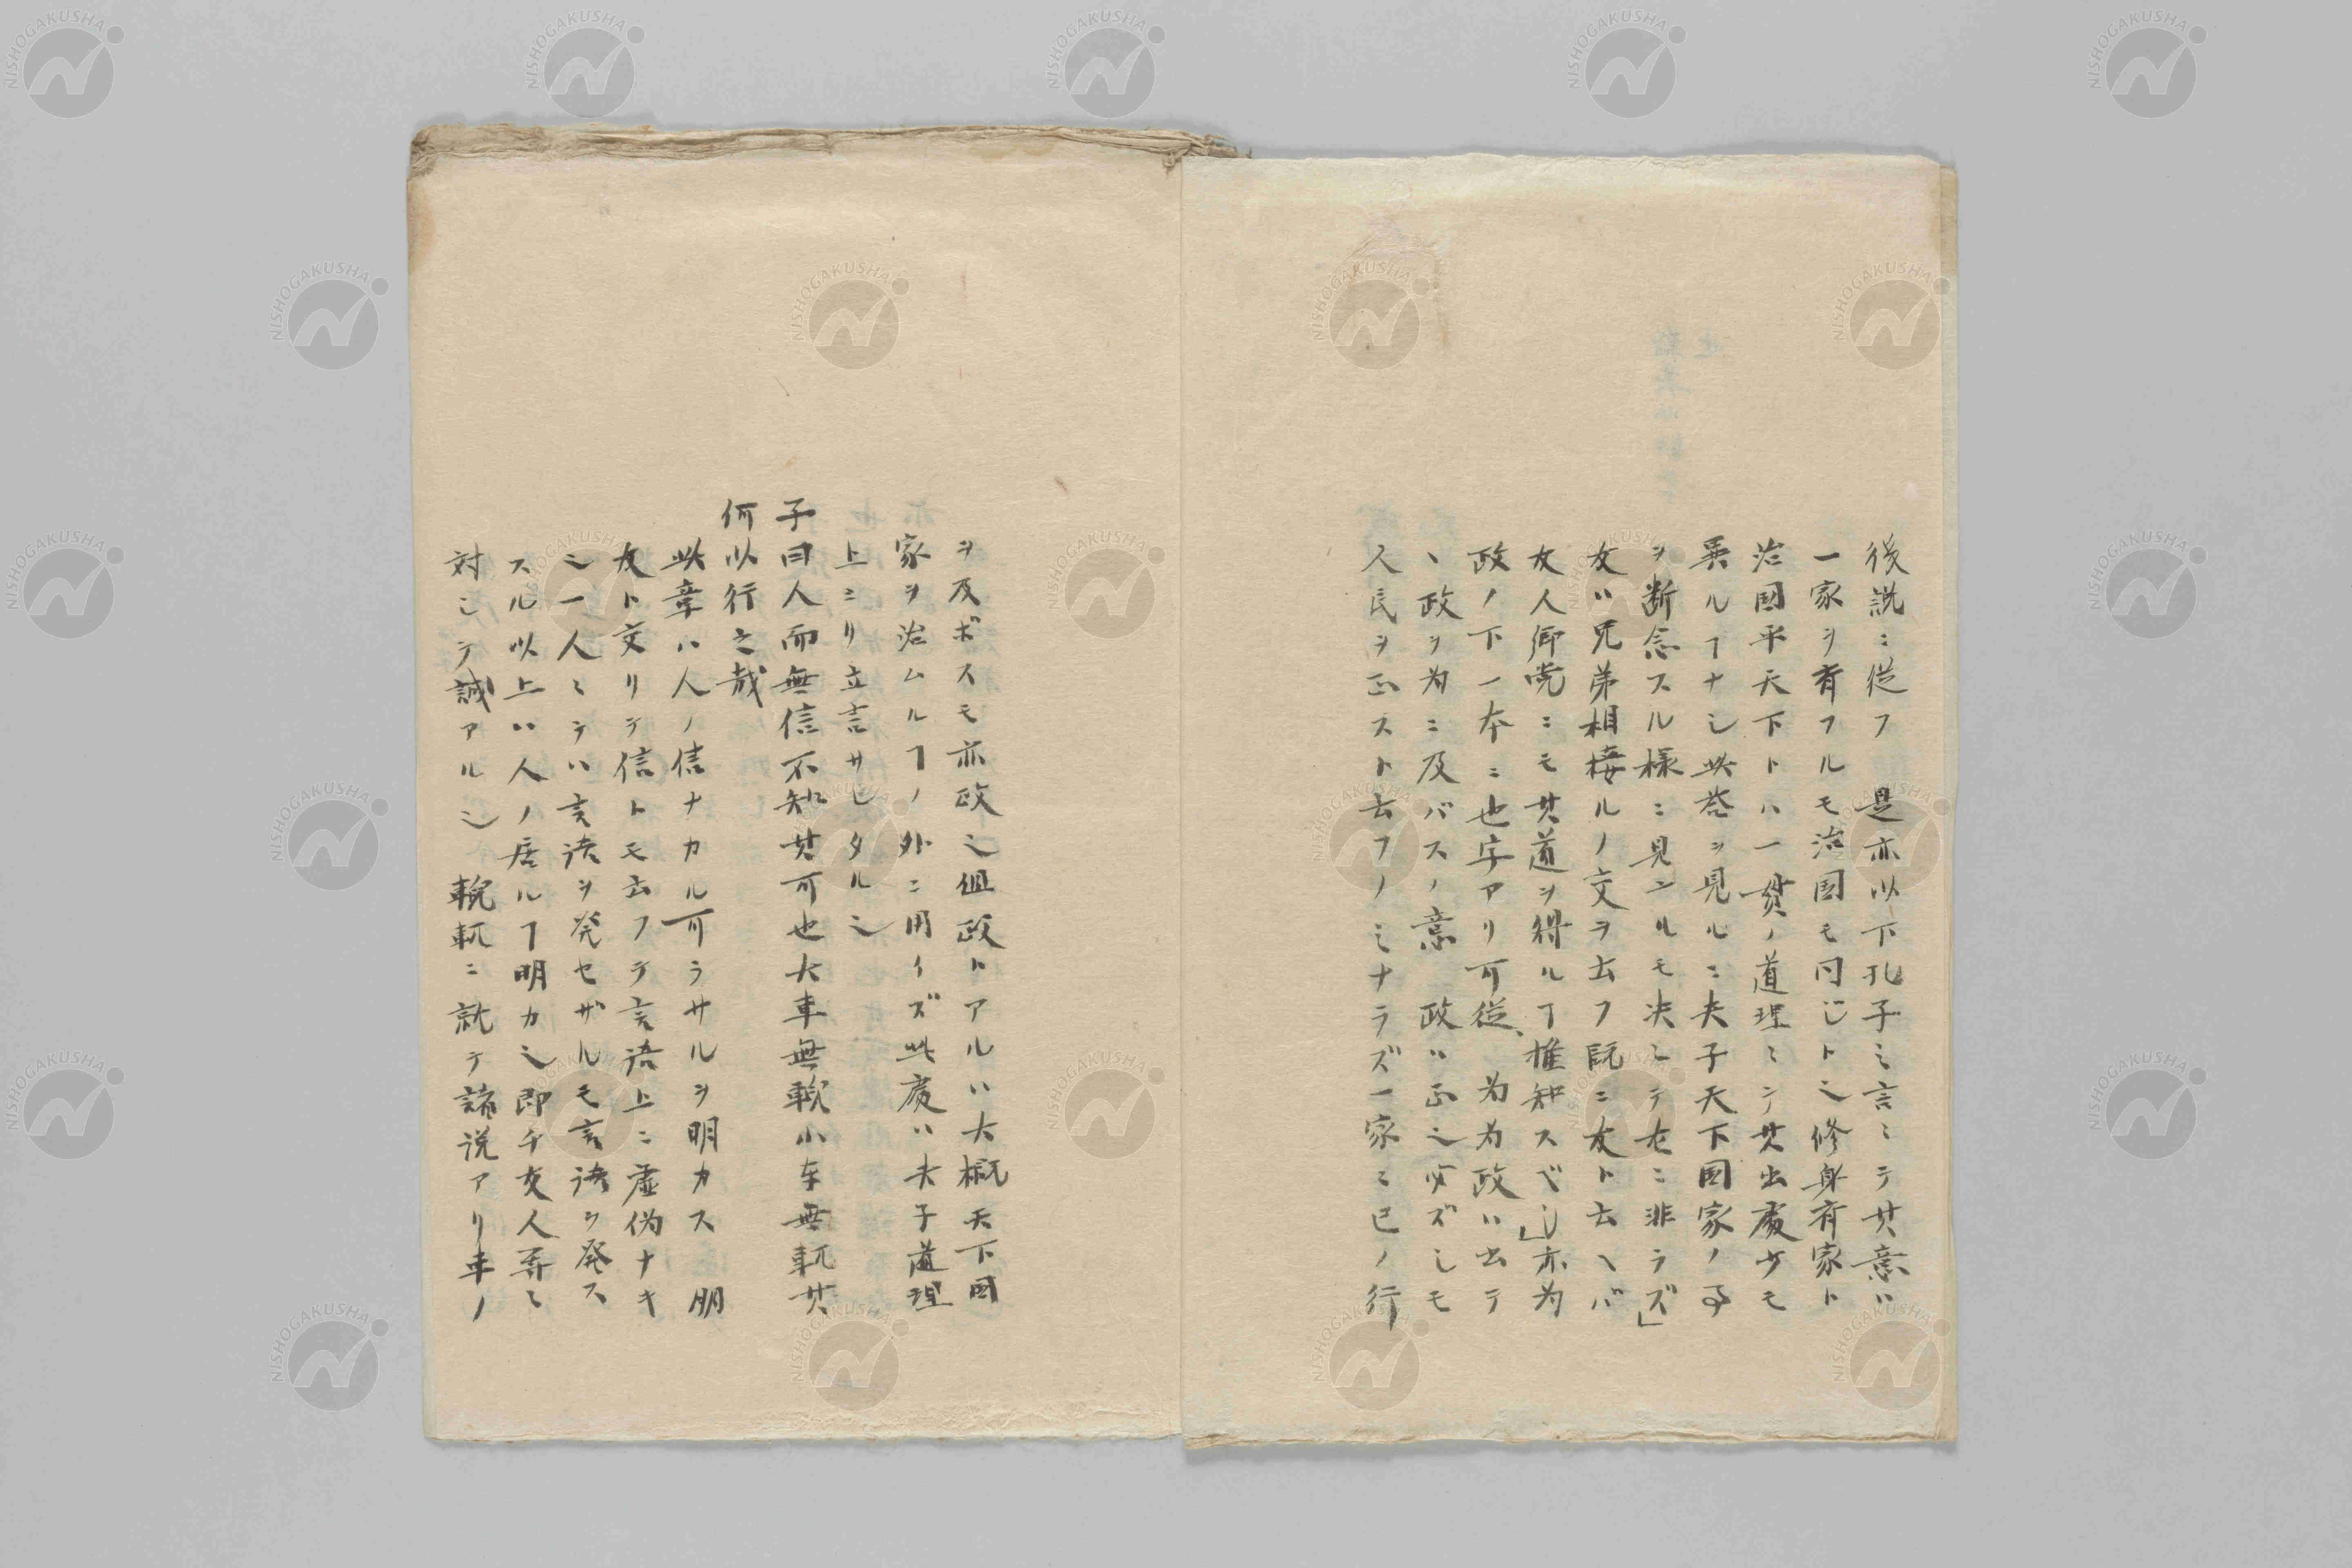 後説ニ従フ 是亦以下孔子ノ言ニテ其意ハ
一家ヲ有フルモ治国モ同じト之修身齊家ト
治國平天下トハ一貫ノ道理ニシテ其出處少モ
異ルヿナシ此巻ヲ見ルニ夫子天下国家ノ事
ヲ断念スル様ニ見ユルモ決シテ左ニ非ラズ」
友ハ兄弟相接ルノ文ヲ云フ既ニ友ト云ヘバ
友人郷党ニモ其道ヲ得ルヿ推知スベシ」亦為
政ノ下一本ニ也字アリ可従、為為政ハ出テ
、政ヲ為ニ及バスノ意 政ハ正之必ズシモ
人民ヲ正スト云フノミナラズ一家ニ已ノ行
ヲ及ボスモ亦政之但政トアルハ大概天下国
家ヲ治ムルヿノ外ニ用イズ此處ハ夫子道理
上ニリ立言サレタル之
子曰人而無信不知其可也大車無輗小车無軏其
何以行之哉
此章ハ人ノ信ナカル可ラサルヲ明カス 朋
友ト交リテ信トモ云フテ言語上ニ虚偽ナキ
之一人ミテハ言語ヲ発セザルモ言語ヲ発ス
スル以上ハ人ノ居ルヿ明カ之即チ交人弄ミ
対シテ誠アル之 輗軏ニ就テ諸説アリ車ノ